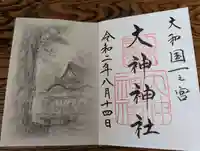 大和国一之宮
大神神社
令和二年八月十四日